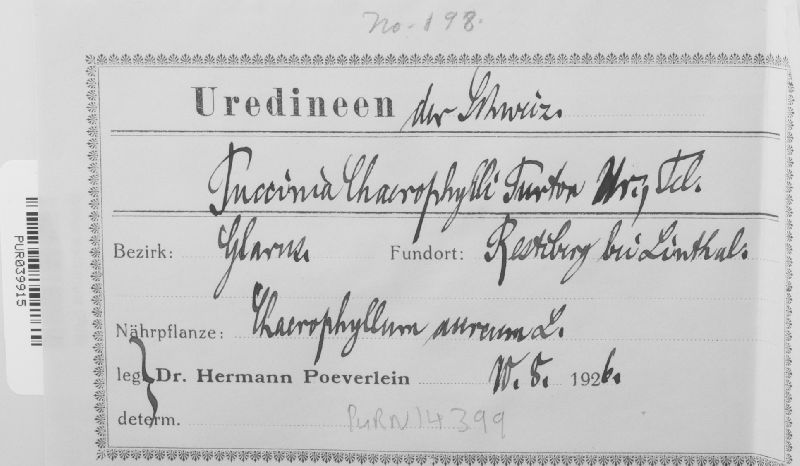 No. 198.
Uredineen der Schweiz.
Puccinia Chaerophylli Purton Ur., Tel.
Bezirk: Glarus. Fundort: bei Linthal.
Nährpflanze: Chaerophyllum aureum L.
leg. Dr. Hermann Poeverlein 8. 1926.
determ. PURN14399
PUR039915